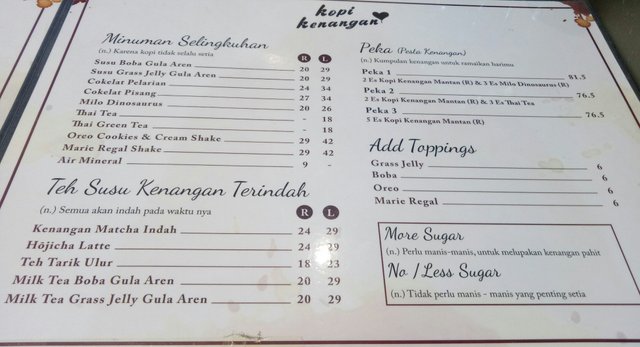 kopi
kenangan
Minuman Selingkuhan
(n.) Karena kopi tidak selalu setia
R L
Susu Boba Gula Aren 20 29
Susu Grass Jelly Gula Aren 20 29
Cokelat Pelarian 24 34
Cokelat Pisang 27 34
Milo Dinosaurus 20 26
Thai Tea - 18
Thai Green Tea - 18
Oreo Cookies & Cream Shake 29 42
Marie Regal Shake 29 42
Air Mineral 9 -
Teh Susu Kenangan Terindah
(n.) Semua akan indah pada waktu nya
R L
Kenangan Matcha Indah 24 29
Hōjicha Latte 24 29
Teh Tarik Ulur 18 23
Milk Tea Boba Gula Aren 20 29
Milk Tea Grass Jelly Gula Aren 20 29
Peka (Pesta Kenangan)
(n.) Kumpulan kenangan untuk ramaikan harimu
Peka 1 81.5
2 Es Kopi Kenangan Mantan (R) & 3 Es Milo Dinosaurus (R)
Peka 2 76.5
2 Es Kopi Kenangan Mantan (R) & 3 Es Thai Tea
Peka 3 76.5
5 Es Kopi Kenangan Mantan (R)
Add Toppings
Grass Jelly 6
Boba 6
Oreo 6
Marie Regal 6
More Sugar
(n.) Perlu manis-manis, untuk melupakan kenangan pahit
No / Less Sugar
(n.) Tidak perlu manis - manis yang penting setia